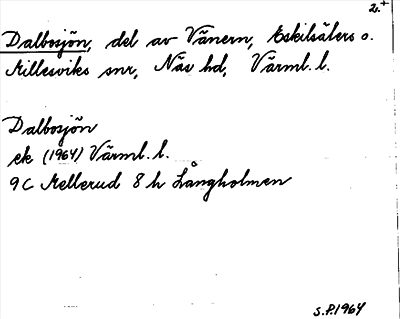 2.+
Dalbosjön, del av Vänern, Eskilsäters o.
Millesviks snr, Näs hd, Värml. l.
Dalbosjön
ek (1964) Värml. l.
9C Mellerud 8 h Långholmen
S.P. 1964